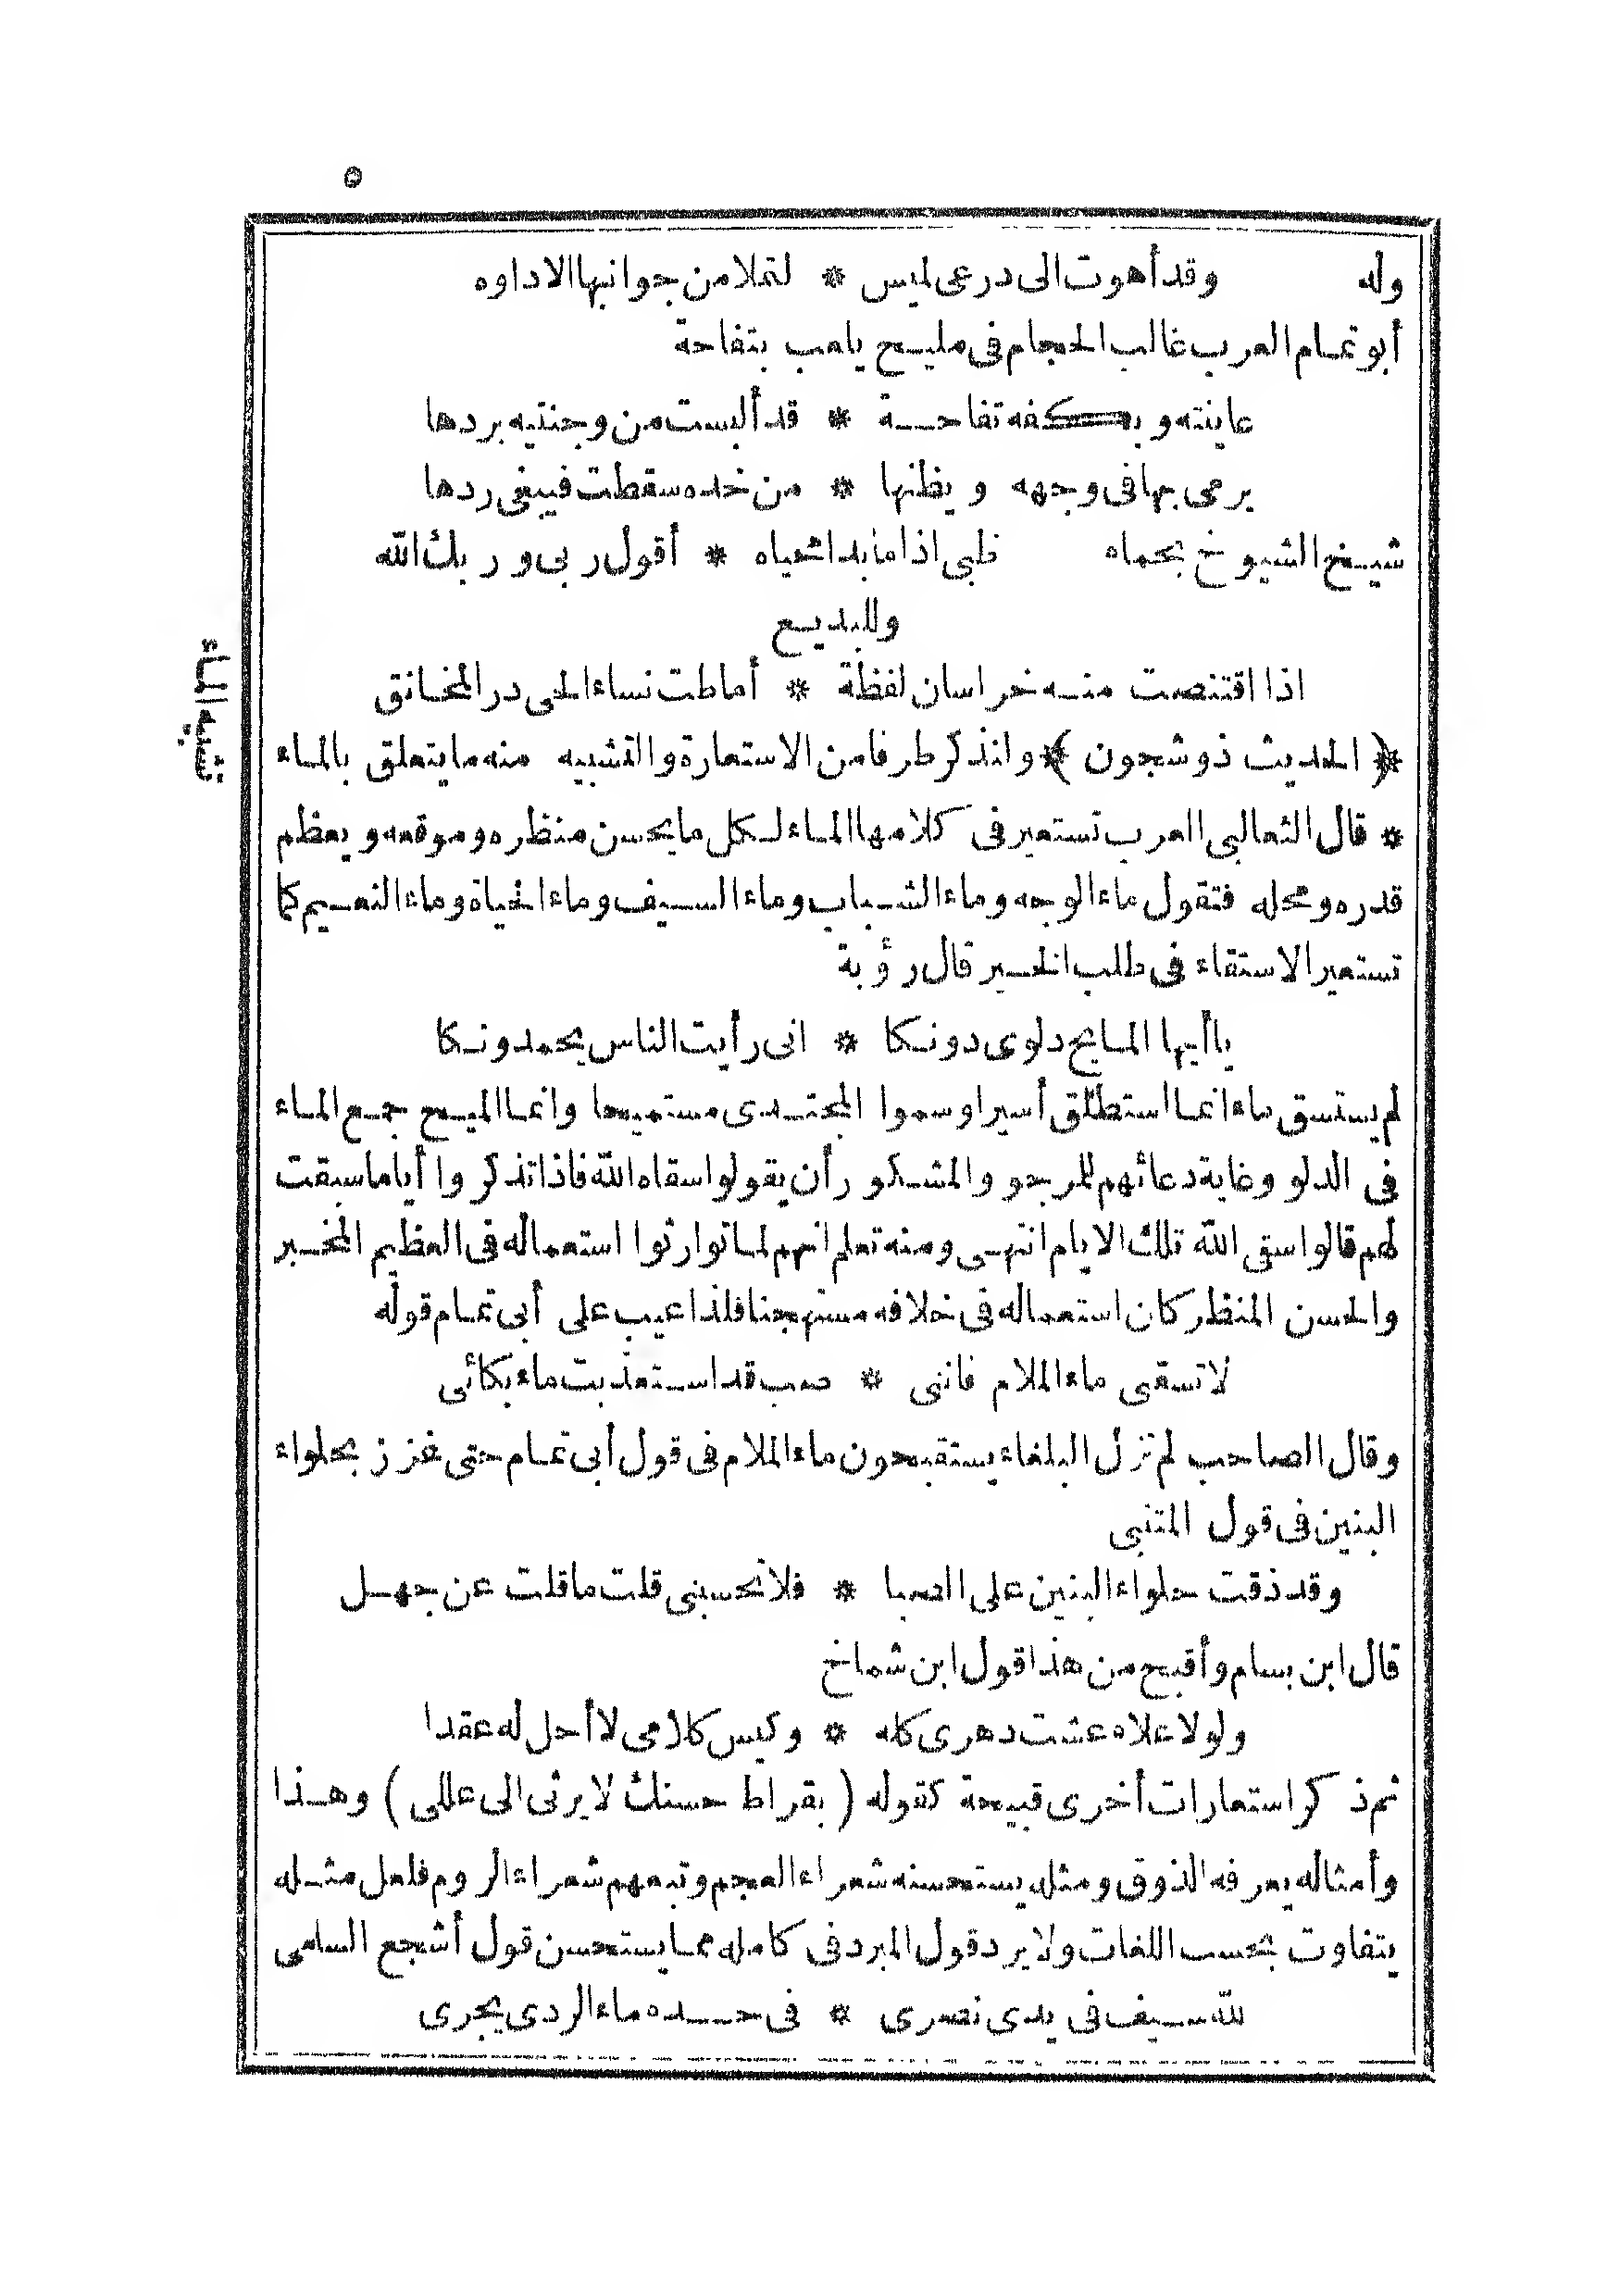 ٥
وله وقد أهوت الى درعى لميس * لتملا من جوانبها الاداوه
أبو تمام العرب غالب الحجام فى مليح يلعب بتفاحة
عاينته وبكفه تفاحة * قد ألبست من وجنتيه بردها
يرمى بها فى وجهه ويظنها * من خده سقطت فيبغى ردها
شيخ الشيوخ بحماه قلبى اذا ما بدا شحياه * أقول ربى وربك الله
وللبديع
اذا اقتنصت منه خراسان لفظة * أماطت نساء الحى در المخانق
*(الحديث ذو شجون)* ولنذكر طرفا من الاستعارة والتشبيه منه ما يتعلق بالماء
تشبيه الماء
* قال الثعالبى العرب تستعير فى كلامها الماء لكل ما يحسن منظره وموقعه ويعظم
قدره ومحله فتقول ماء الوجه وماء الشباب وماء السيف وماء الحياة وماء النعيم كما
تستعير الاستقاء فى طلب الخير قال رؤبة
يا أيها المايح دلوى دونكا * انى رأيت الناس يحمدونكا
لم يستسق ماء انما استطلق أسيرا وسموا المجتدى مستميحا وانما الميح جمع الماء
فى الدلو وغاية دعائهم للمرجو والمشكور أن يقولوا سقاه الله فاذا تذكروا أياما سبقت
لهم قالوا سقى الله تلك الايام انتهى ومنه تعلم انهم لما توارثوا استعماله فى العظيم المخبر
والحسن المنظر كان استعماله فى خلافه مستهجنا فلذا عيب على أبى تمام قوله
لا تسقى ماء الملام فاننى * صب قد استعذبت ماء بكائى
وقال الصاحب لم تزل البلغاء يستقبحون ماء الملام فى قول أبى تمام حتى غزز بحلواء
البنين فى قول المتنبى
وقد ذقت حلواء البنين على الصبا * فلا تحسبنى قلت ما قلت عن جهل
قال ابن بسام وأقبح من هذا قول ابن شماخ
ولولا علاه عشت دهرى كله * وكيس كلامى لا أحل له عقدا
ثم ذكر استعارات أخرى قبيحة كقوله (بقراط حسنك لا يرثى الى عللى) وهذا
وأمثاله يعرفه الذوق ومثله يستحسنه شعراء العجم وتبعهم شعراء الروم فلعل مثله
يتفاوت بحسب اللغات ولا يرد قول المبرد فى كامله مما يستحسن قول أشجع السلمى
لله سيف فى يدى نصرى * فى حده ماء الردى يجرى